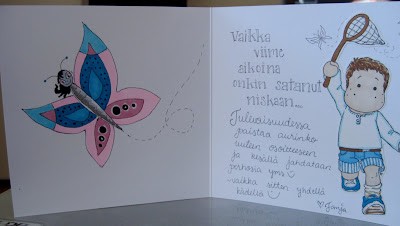 Vaikka
viime
aikoina
onkin satanut
niskaan...
Tulevaisuudessa
paistaa aurinko
uuteen osoitteeseen
ja kesällä jahdataan
perhosia yms
vaikka sitten yhdellä
kädellä
Jonja